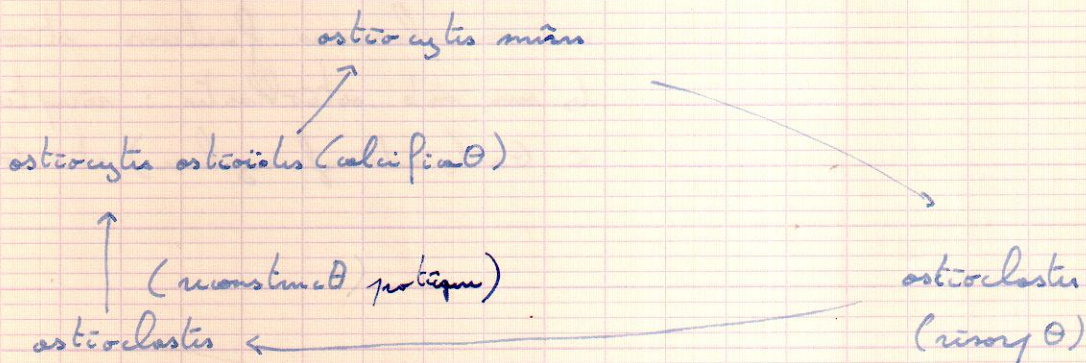 ostéocytes mûrs
ostéocytes ostéoïdes (calcificaθ)
(reconstrucθ protéique)
ostéoclastes
ostéoclastes
(résorpθ)